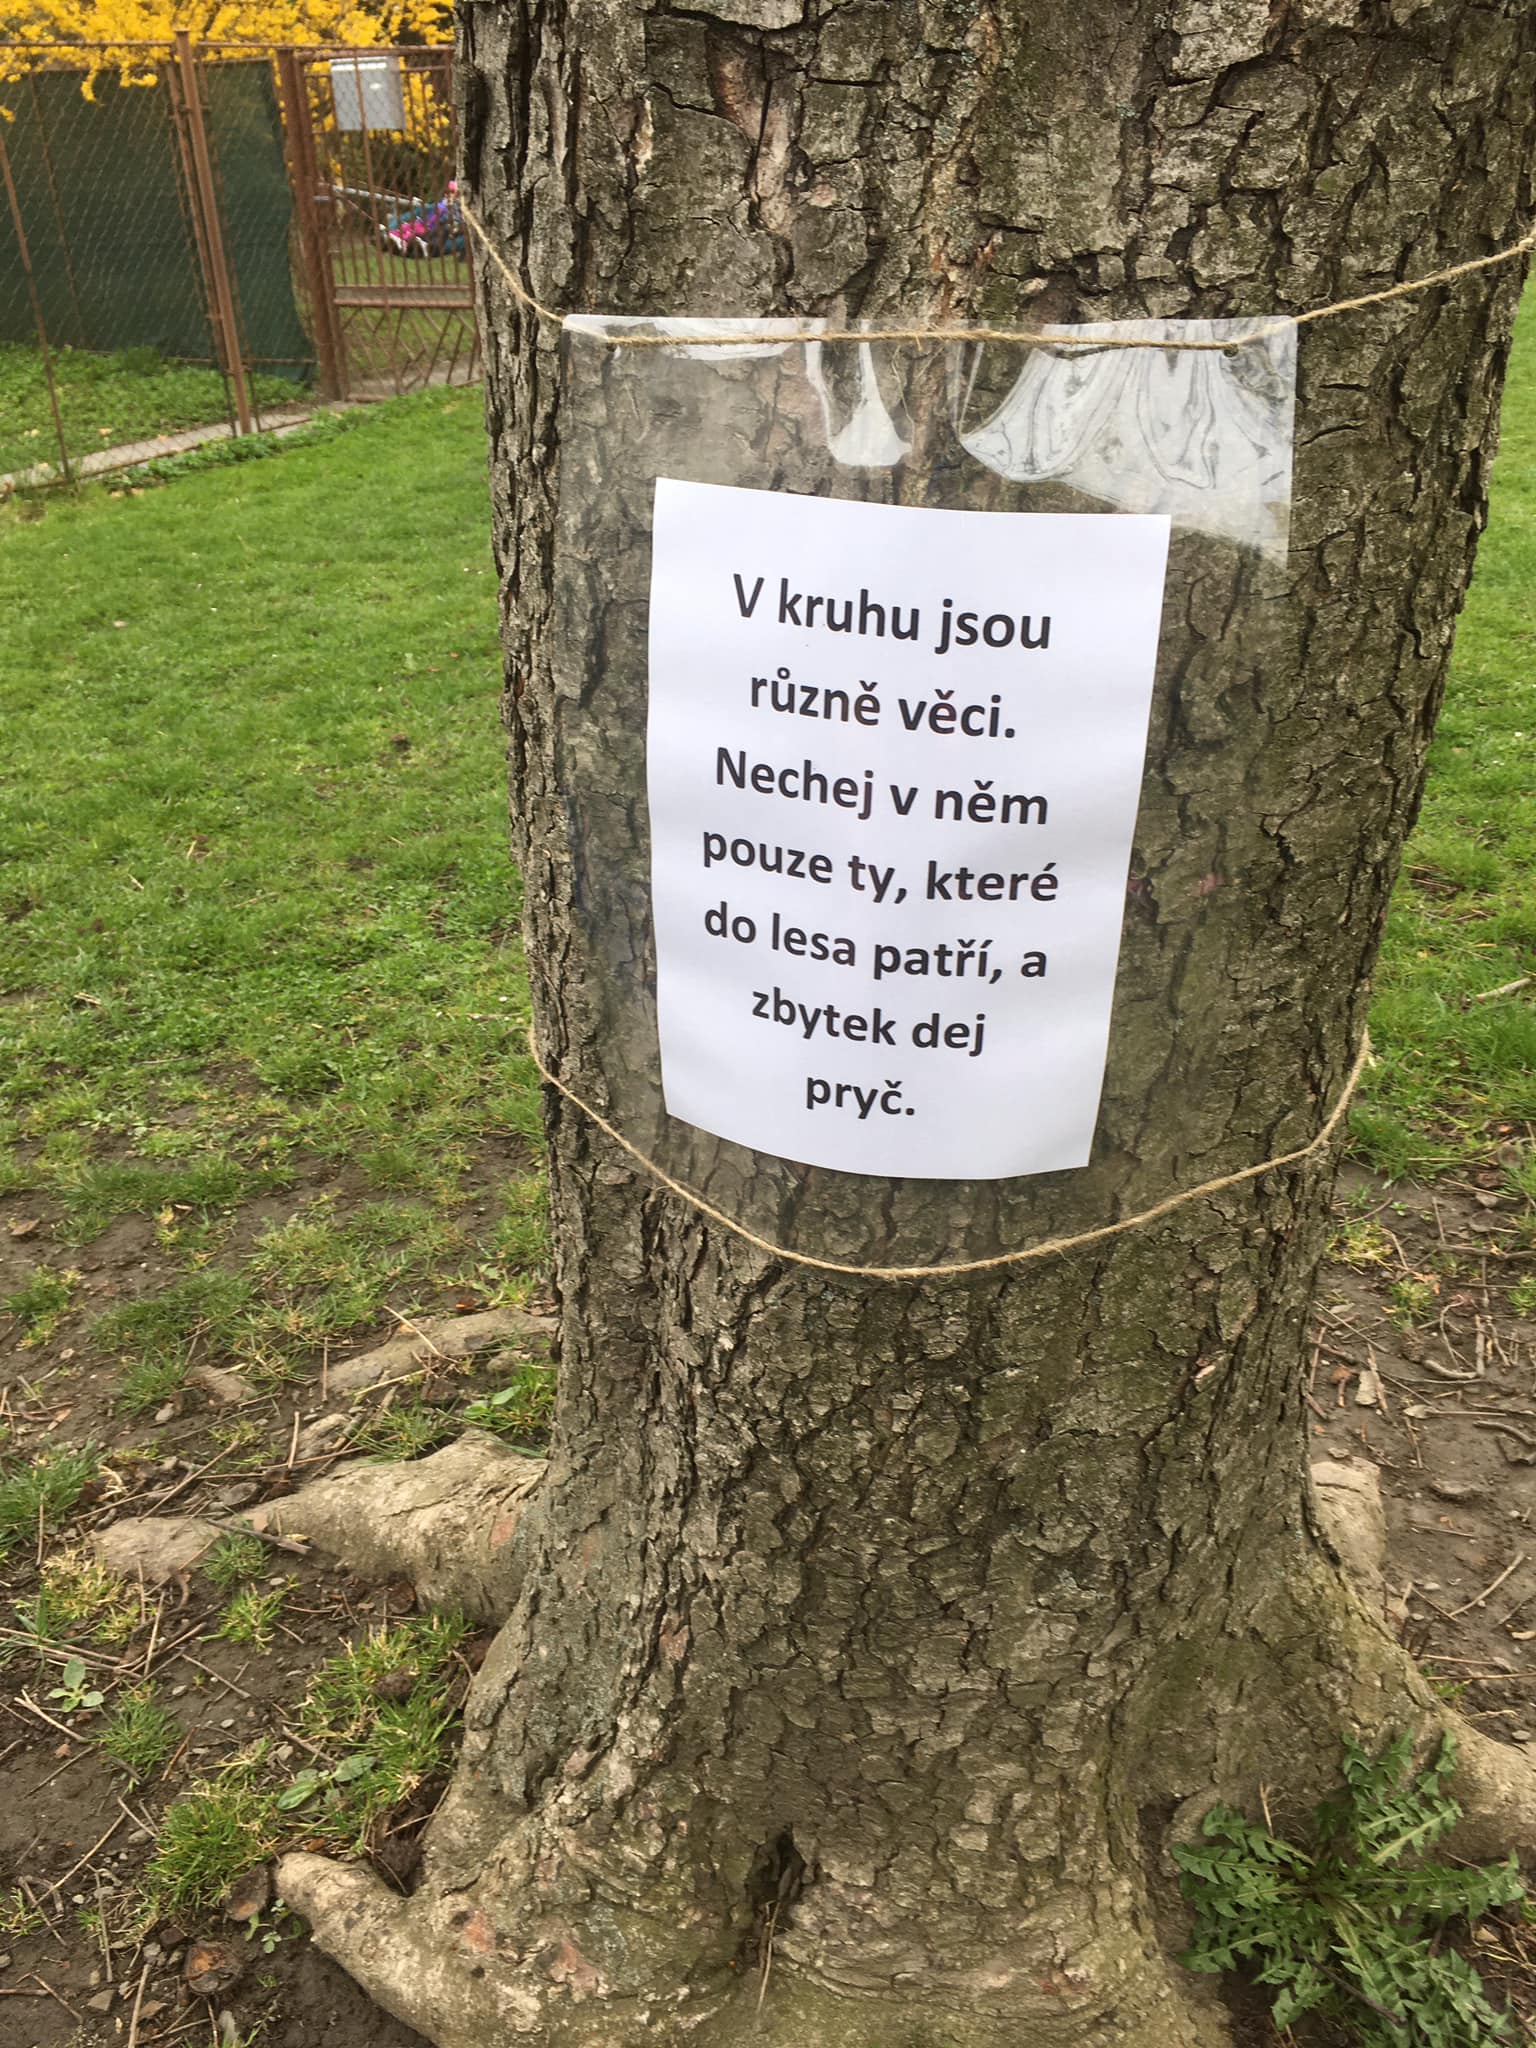 V kruhu jsou
různě věci.
Nechej v něm
pouze ty, které
do lesa patří, a
zbytek dej
pryč.